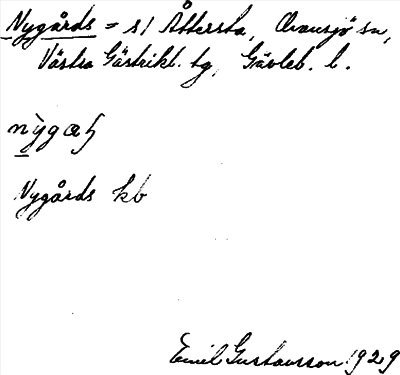 Nygårds = s/ Åttersta, Ovansjö sn,
Västra Gästrikl. tg, Gävleb. l.
Nygårds kb
Emil Gustavsson 1929